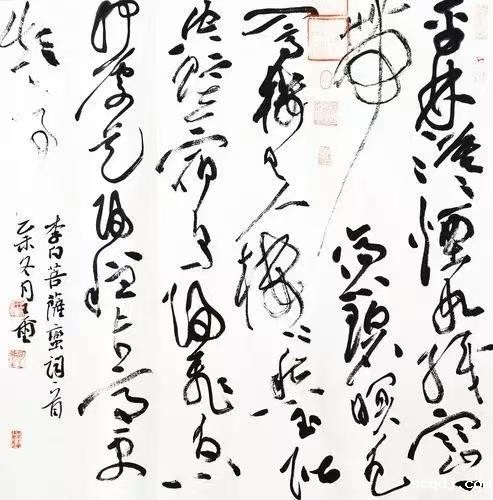 平林漠漠煙如織寒山
一帶傷心碧暝色
入高樓有人樓上愁玉階
空佇立宿鳥歸飛急
何處是歸程長亭更
短亭
李白菩薩蠻詞一首
乙未冬月